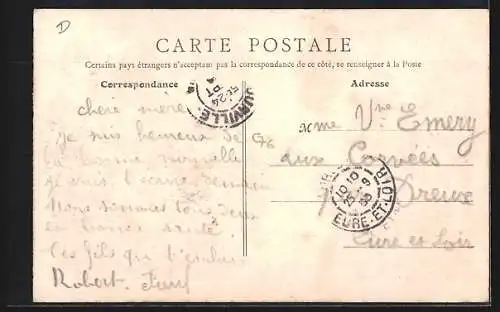 D
CARTE POSTALE
Certains pays étrangers n'acceptant pas la correspondance de ce côté, se renseigner à la Poste
Correspondance
Adresse
chère mère
je suis heureux de
la bonne nouvelle
Nous sommes tous deux
en bonne santé
Ces fils qui
Robert
Mme Vve Emery
aux Corvées
Dreux
Eure et Loir
EURE-ET-LOIR